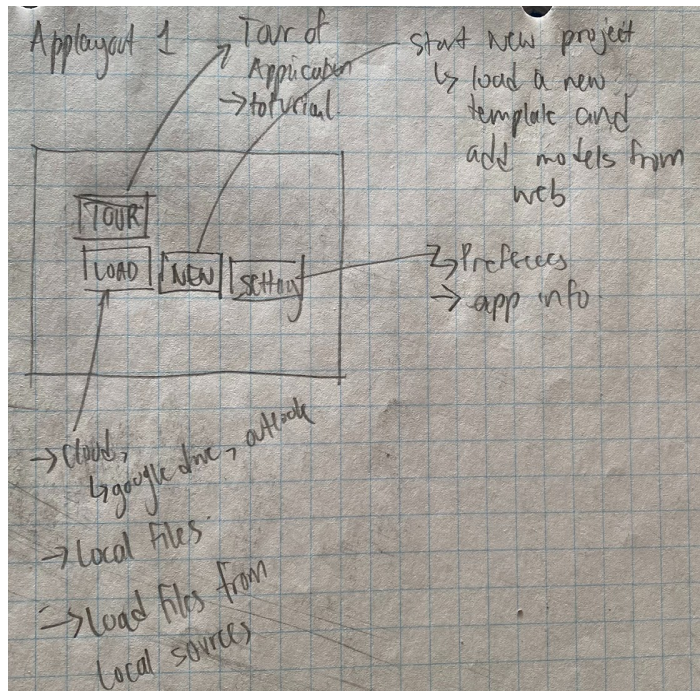 Applayout 1
Tour of
Application
→ toturial
start New project
↳ load a new
template and
add models from
web
TOUR
LOAD
NEW
setting
↳ Prefeces
→ app info
→ cloud,
↳ google drive, outlook
→ Local files
→ Load files from
Local sources